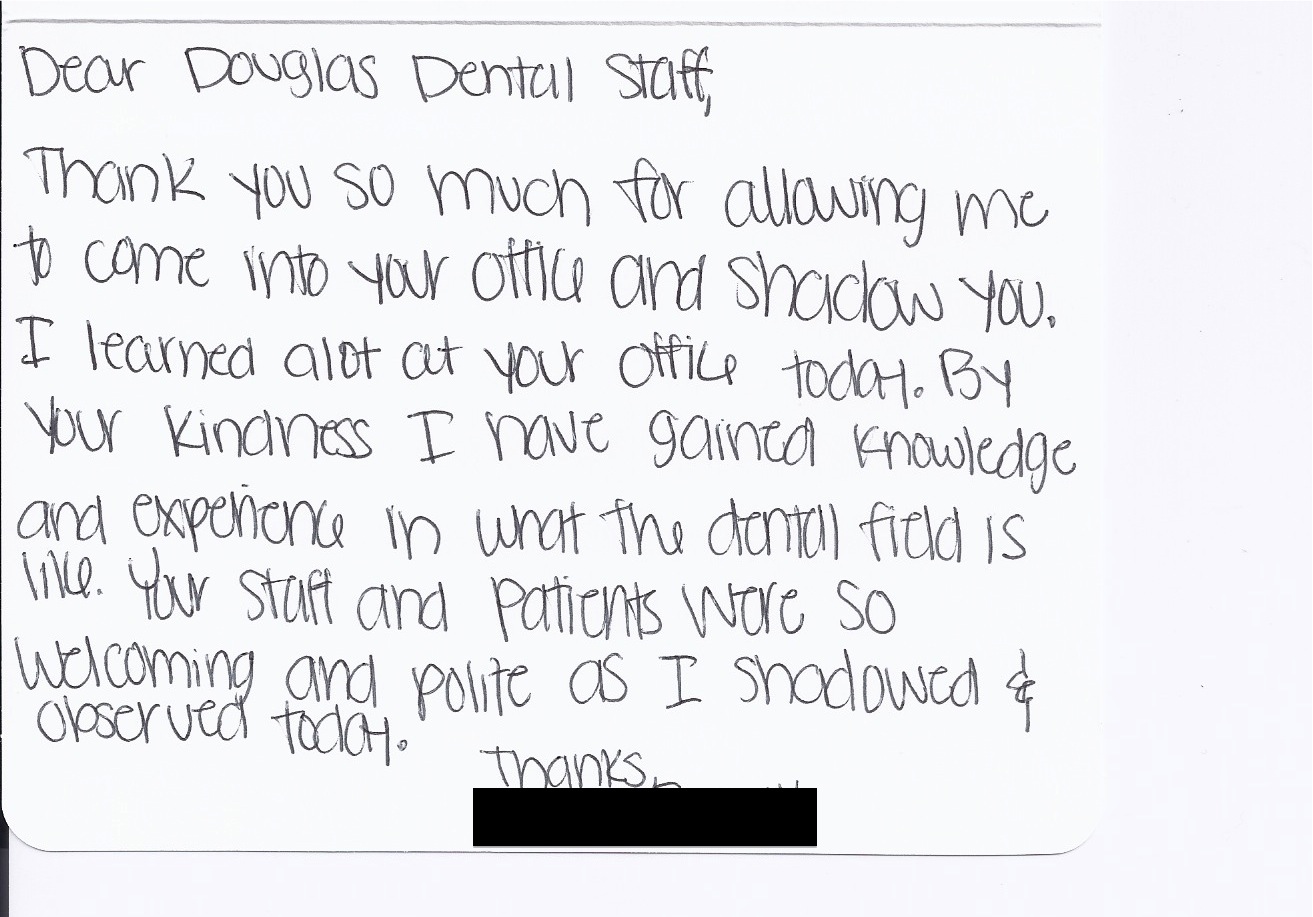 Dear Douglas Dental Staff,
Thank you so much for allowing me
to come into your office and shadow you.
I learned alot at your office today. By
your kindness I have gained knowledge
and experience in what the dental field is
like. Your staff and patients were so
welcoming and polite as I shadowed &
observed today.
Thanks,